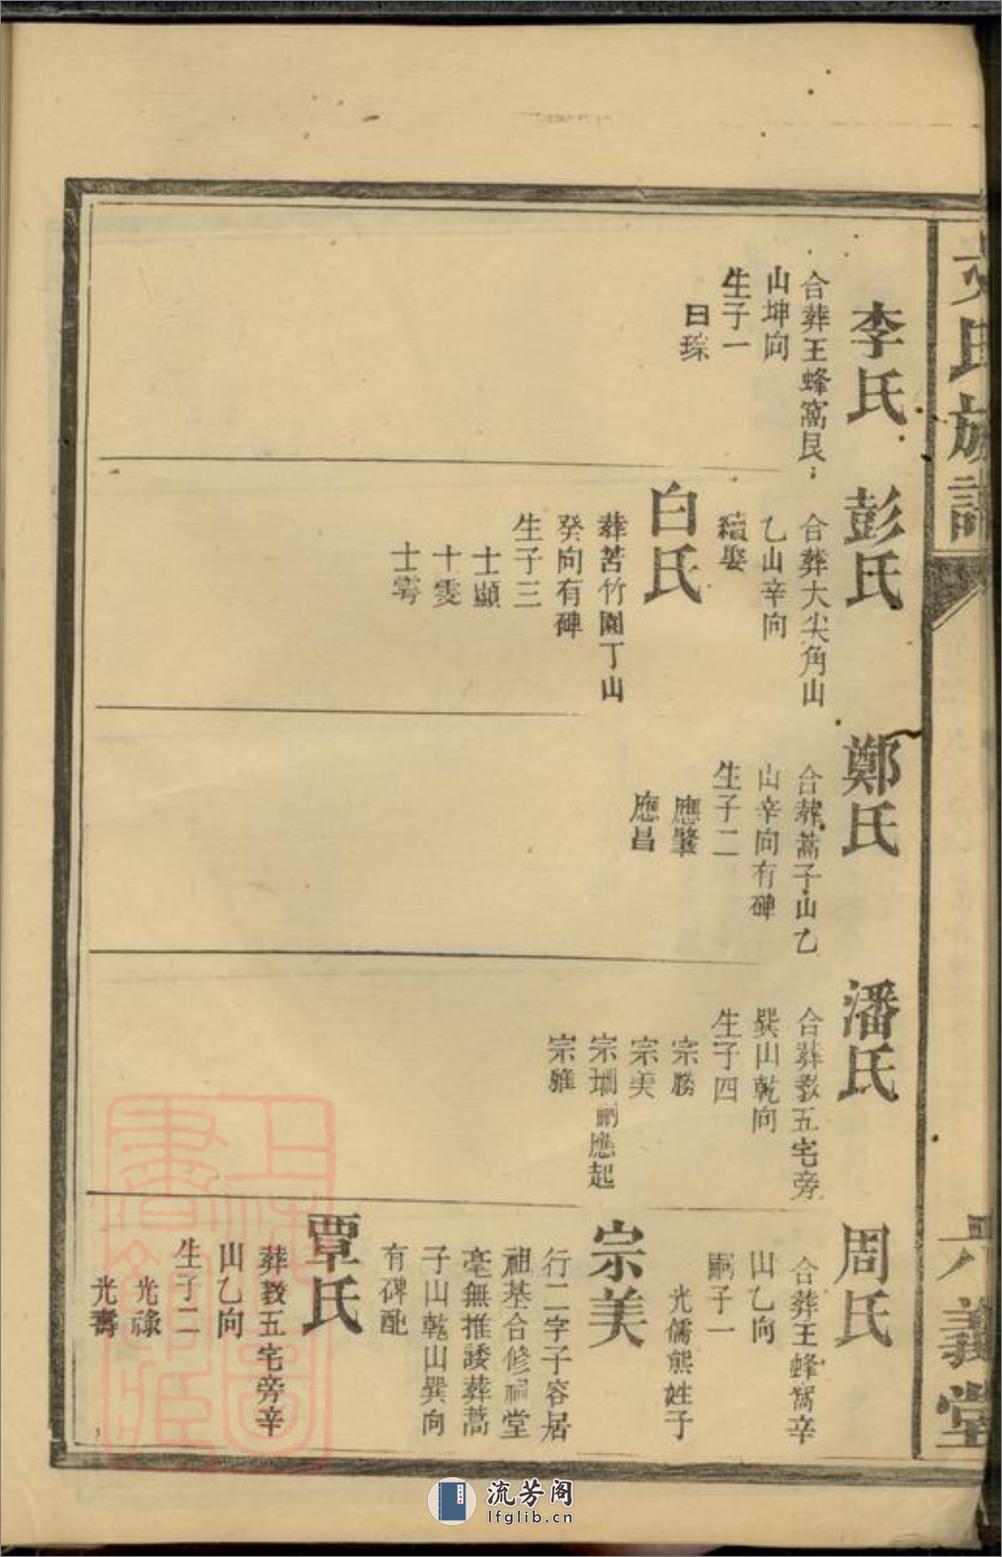 氏族譜
六義堂
李氏
合葬王蜂窩艮
山坤向
生子一
日琮
彭氏
合葬大尖角山
乙山辛向
續娶
白氏
葬苦竹園丁山
癸向有碑
生子三
士顯
士雯
士雱
鄭氏
合葬蒿子山乙
山辛向有碑
生子二
應肇
應昌
潘氏
合葬教五宅旁
巽山乾向
生子四
宗勝
宗美
宗璵嗣應起
宗雅
周氏
合葬王蜂窩辛
山乙向
嗣子一
光儒熊姓子
宗美
行二字子容居
祖基合修祠堂
毫無推諉葬蒿
子山乾山巽向
有碑配
覃氏
葬教五宅旁辛
山乙向
生子二
光祿
光壽
上海圖
書館藏
流芳阁
lfglib.cn